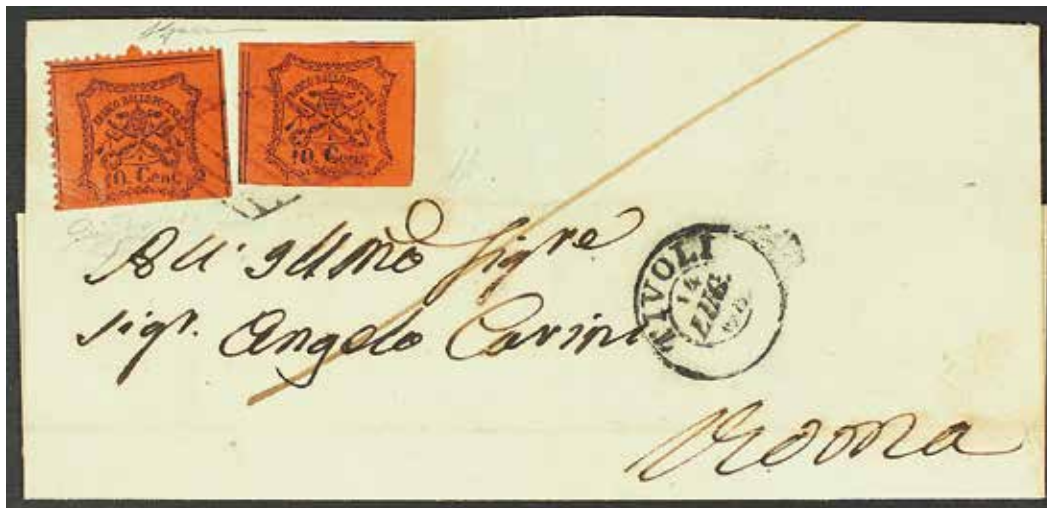 FRANCO BOLLO POSTALE
10 Cent
FRANCO BOLLO POSTALE
10 Cent
All' Illmo Sigre
Sigr. Angelo Carini
TIVOLI
14
LUG.
Roma